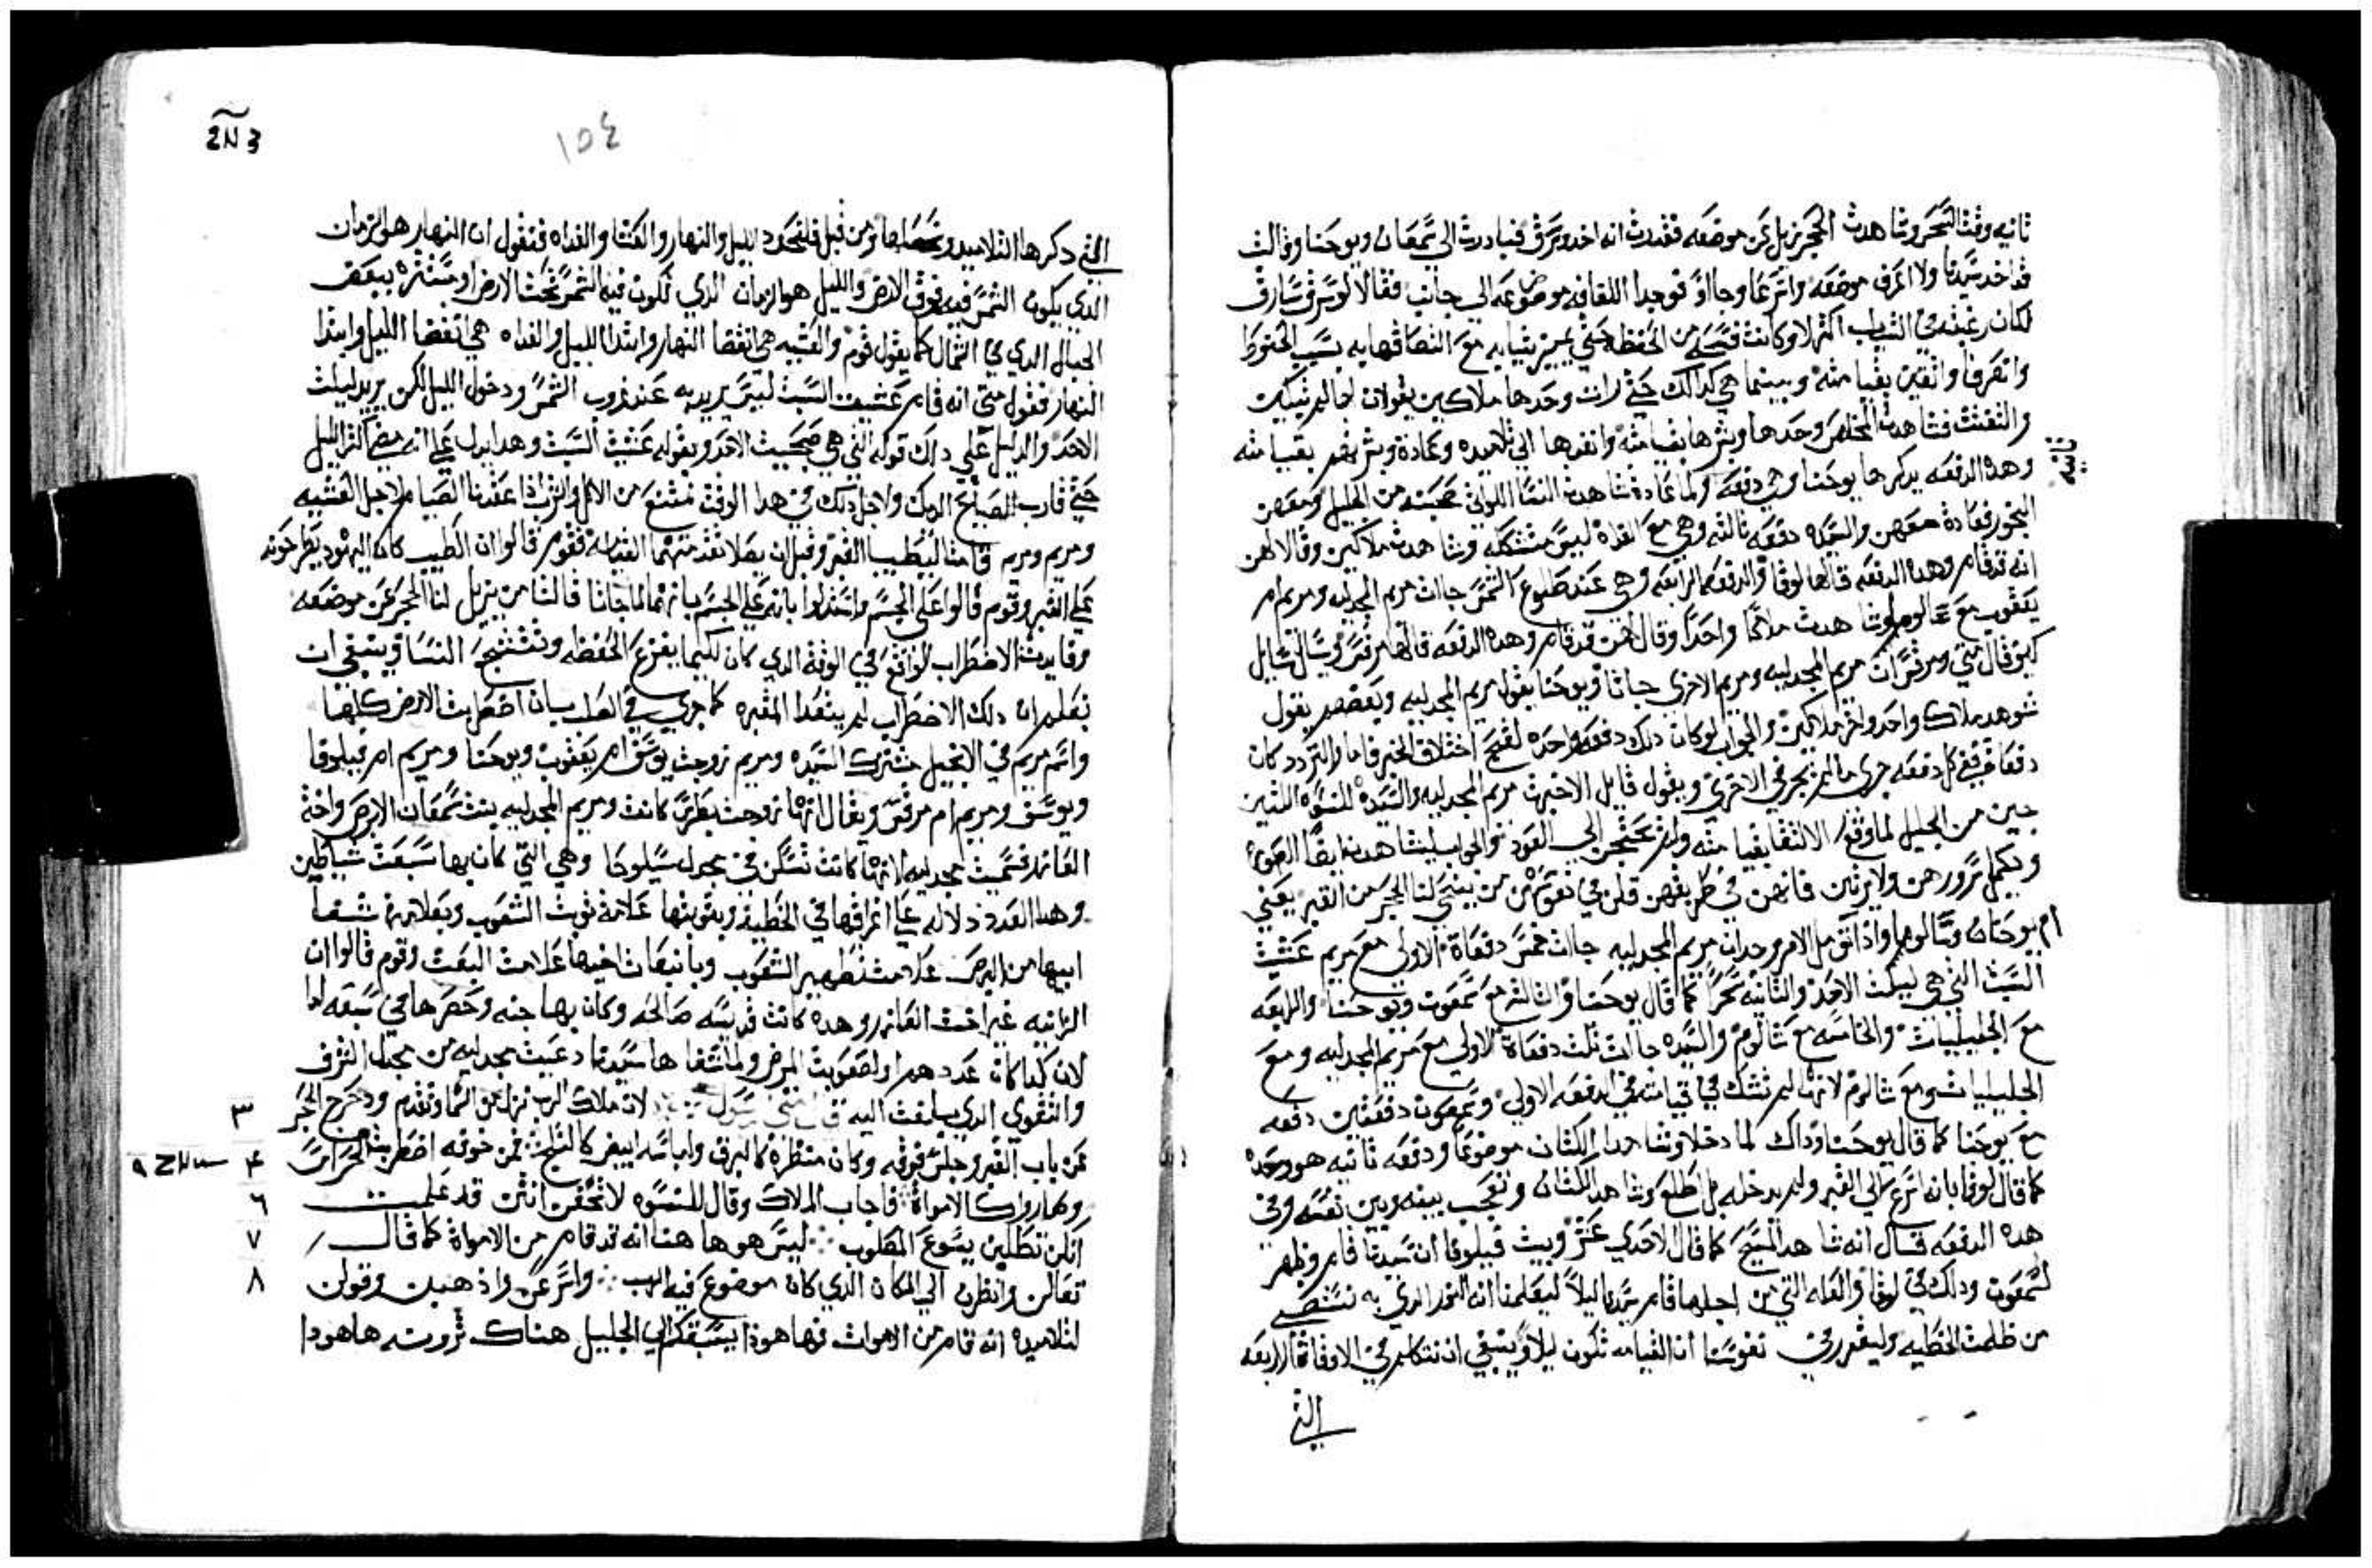 ثانيه وقت السحر وشاهدت الحجر نزيل عن موضعه فقدرت انه اخد وسرق فبادرت الي شمعان ويوحنا وقالت
قد اخد سيدنا ولا اعرف موضعه واسرعا وجااو فوجدا اللفافه موضوعه الي جانب فقالا لو سرق سارق
لكان رغبته في التياب اكتر لا وكانت من الحفظه حتي يميز تيابه مع التصاقها به بسبب الحنوط
وانصرفا واثقين بقيامته وبينما هي كدالك حتي رات وحدها ملاكين يقولان لها لم تبكين
والتفتت فشاهدت المخلص وحدها وبشرها بقيامته وانفدها الي تلاميده وعادة وبشرتهم بقيامته
وهده الدفعه يدكرها يوحنا دفعه ولما عادة شاهدت النسا اللواتي صحبنه من الجليل ومعهن
البخور فعادة معهن والسيده دفعه تالته وهي مع الغداه ليس متشكله وشاهدت ملاكين وقالا لهن
انه قد قام وهده الدفعه قالها لوقا والدفعه الرابعه وهي عند طلوع الشمس جاات مريم المجدليه ومريم ام
يعقوب مع سالوم وشاهدت ملاكا واحدا وقال لهن قد قام وهده الدفعه قالها مرقس وسال سايل
كيف قال متي ومرقس ان مريم المجدليه ومريم الاخري جاتا ويوحنا يقول مريم المجدليه وبعضهم يقول
شوهد ملاك واحد واخر ملاكين والجواب لو كان دلك دفعه واحده لقبح اختلاف الخبر فاما والتردد كان
دفعات ففي كل دفعه جري ما لم يجر في الاخري ويقول قايل الا خبرت مريم المجدليه والسيده للنسوه اللتين
جين من الجليل لما وقع الالتقا بقيامته ولم تحتجن الي العود والجواب ليشاهدنه ايضا
ويكمل سرورهن ولا يرتبن فانهن في طريقهن قلن في نفوسهن من ينحي لنا الحجر من القبر يعني
ام يوحنان وسالوم واذا تومل الامر وجد ان مريم المجدليه جاات خمس دفعاة الاولي مع مريم عشيت
السبت التي هي ليلت الاحد والتانيه سحرا كما قال يوحنا والتالته مع شمعون ويوحنا والرابعه
مع الجليليات والخامسه مع سالوم والسيده جاات تلت دفعاة الاولي مع مريم المجدليه ومع
الجليليات ومع سالوم لانها لم تشك في قيامته في الدفعه الاولي وشمعون دفعتين دفعه
مع يوحنا كما قال يوحنا وداك لما دخلا وشاهدا الكتان موضوعا ودفعه تانيه هو وحده
كما قال لوقا بانه اسرع الي القبر ولم يدخله بل اطلع وشاهد الكتان وتعجب بينه وبين نفسه وفي
هده الدفعه قال انه شاهد المسيح كما قال الاحدي عشر وبيت قيلوفا ان سيدنا قام وظهر
لشمعون ودلك في لوقا والعله التي من اجلها قام سيدنا ليلا ليعلمنا انه النور الدي به نستضي
من ظلمت الخطيه وليقرر في نفوسنا ان القيامه تكون ليلا وينبغي ان نتكلم في الاوقات الاربعه
التي
تانيه
١٥٤
التي دكرها التلاميد ومن قبل فلنحدد الليل والنهار والعشا والغداه فنقول ان النهار هو الزمان
الدي يكون الشمس فيه فوق الارض والليل هو الزمان الدي تكون فيه الشمس تحت الارض او مستتره ببعض
الجبال الدي في الشمال كما يقول قوم والعشيه هي انقضا النهار وابتدا الليل والغداه هي انقضا الليل وابتدا
النهار فقول متي انه قام عشيت السبت ليس يريد به عند غروب الشمس ودخول الليل لكن يريد ليلت
الاحد والدليل علي دلك قوله التي هي صبحيت الاحد وبقوله عشيت السبت وهدا يدل علي انه مضي اكتر الليل
حتي قارب الصباح الديك ولاجل دلك في هدا الوقت نمتنع من الاكل والشرب اذا عقدنا الصيام لاجل العشيه
ومريم ومريم قامتا لتطيب القبر وقبل ان يصلا القيامه فقوم قالوا ان الطيب كان اليهود يطرحونه
علي القبر وقوم قالوا علي الجسم واستدلوا بانه علي الجسم بانهما لما جاتا قالتا من يزيل لنا الحجر عن موضعه
وفايدت الاضطراب الواقع في الوقت الدي كان لكيما يفزع الحفظه وتتشجع النسا وينبغي ان
نعلم ان دلك الاضطراب لم يتعدا المقبره كما جري في الصلب بان اضطربت الارض كلها
واسم مريم في الانجيل مشترك السيده ومريم زوجت يوسف ام يعقوب ويوحنا ومريم ام قيلوفا
ويوسف ومريم ام مرقس ويقال انها زوجت بطرس كانت ومريم المجدليه بنت شمعان الابرص واخت
العازر وسميت مجدليه لانها كانت تسكن في مجدل سيلوحا وهي التي كان بها سبعت شياطين
وهدا العدد دلاله علي انحرافها في الخطيه وبتوبتها علامة توبت الشعوب وبعلامة شفا
ابيها من البرص علامت تطهير الشعوب وبانبعات اخيها علامت البعت وقوم قالوا ان
الزانيه غير اخت العازر وهده كانت قديسه صالحه وكان بها جنه وحصرها في سبعه اما
لان كدا كان عدد هم او لصعوبت المرض ولما شفاها سيدنا دعيت مجدليه من مجدل الشرف
والتقوي الدي بلغت اليه لان ملاك الرب نزل من السما وتقدم ودحرج الحجر
عن باب القبر وجلس فوقه وكان منظره كالبرق ولباسه ابيض كالتلج فمن خوفه اضطربت الحراس
وصاروا كالامواة فاجاب الملاك وقال للنسوه لا تخفن انتن قد علمت
انكن تطلبن يسوع المصلوب ليس هو ها هنا انه قد قام من الامواة كما قال
تعالن وانظرن الي المكان الدي كان موضوع فيه الرب واسرعن واذهبن وقولن
لتلاميده انه قام من الاموات فها هوذا يسبقكم الي الجليل هناك ترونه ها هودا
٣
٤
٦
٧
٨